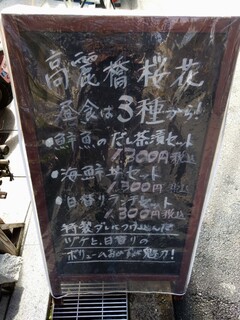 高麗橋桜花
昼食は3種から!
・鮮魚のだし茶漬セット
1,300円税込
・海鮮丼セット
1,300円税込
・日替りランチセット
1,300円税込
特製ダレにつけ込んだ
ヅケと、日替りの
ボリュームおかずが魅力!